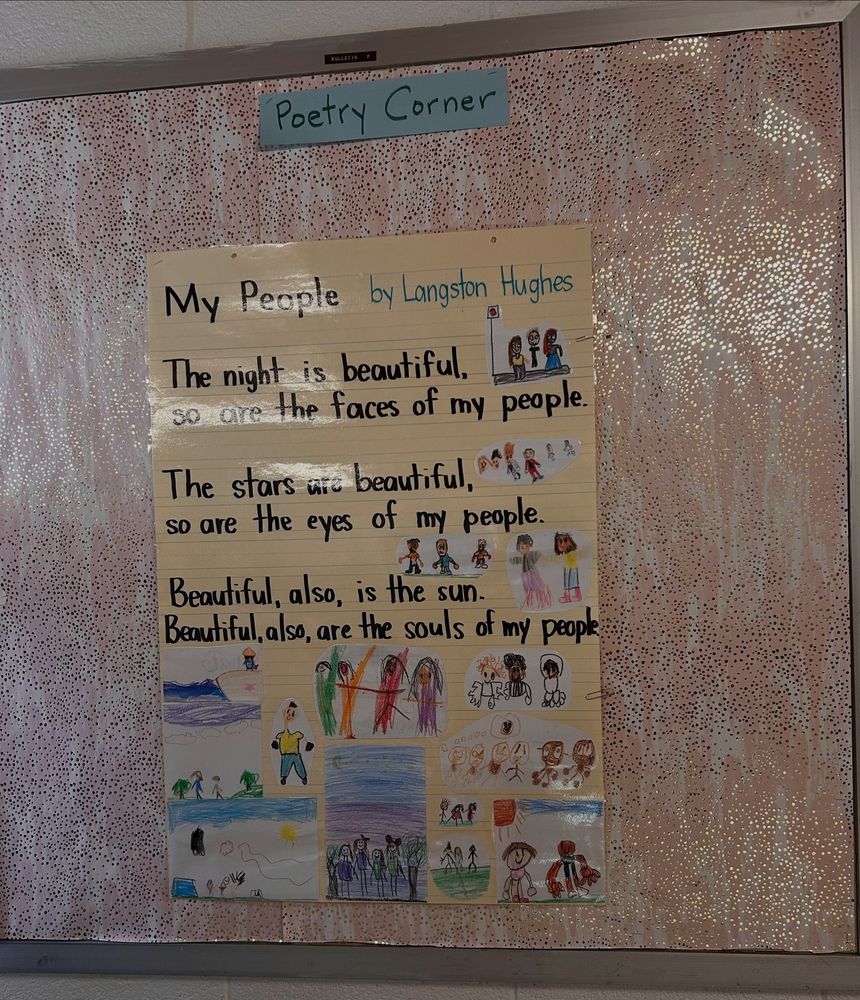 BULLETIN
Poetry Corner
My People by Langston Hughes
The night is beautiful,
so are the faces of my people.
The stars are beautiful,
so are the eyes of my people.
Beautiful, also, is the sun.
Beautiful, also, are the souls of my people